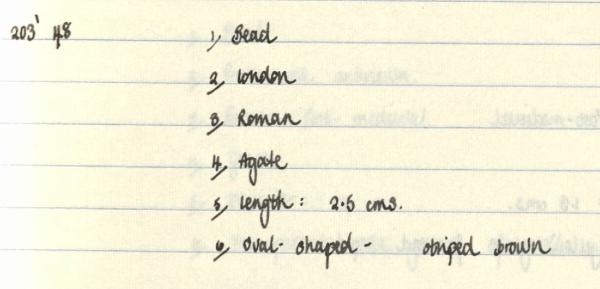 203' 48 1, Bead
2, London
3, Roman
4, Agate
5, Length: 2.5 cms.
6, Oval-shaped- striped brown